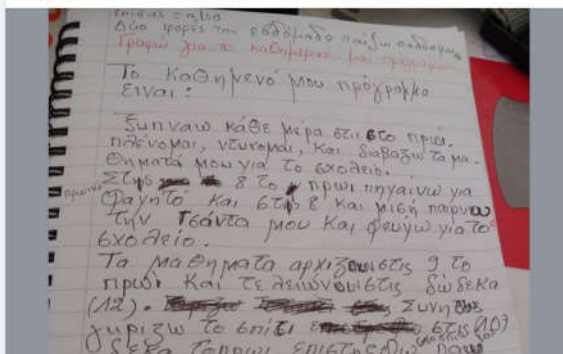 επίσης = also
Δύο φορές την εβδομάδα παίζω ποδόσφαιρο
Γραφω για το καθημερινό μου πρόγραμμα
Το καθημενό μου πρόγραμμα
είναι:
ξυπναω κάθε μέρα στις 6 το πρωι.
πλένομαι, ντυνομαι, και διαβαζω τα μα-
θηματά μου για το σχολείο.
Στης 8 το πρωι πηγαίνω για
πρωινό
φαγητό και στις 8 και μισή παιρνω
την τσάντα μου και φευγω για το
σχολείο.
Τα μαθηματα αρχιζουν στις 9 το
πρωι και τελειώνουν στις δώδεκα
(12). Συνηθως
γυριζω το σπίτι στις (10)
δεκα το πρωι